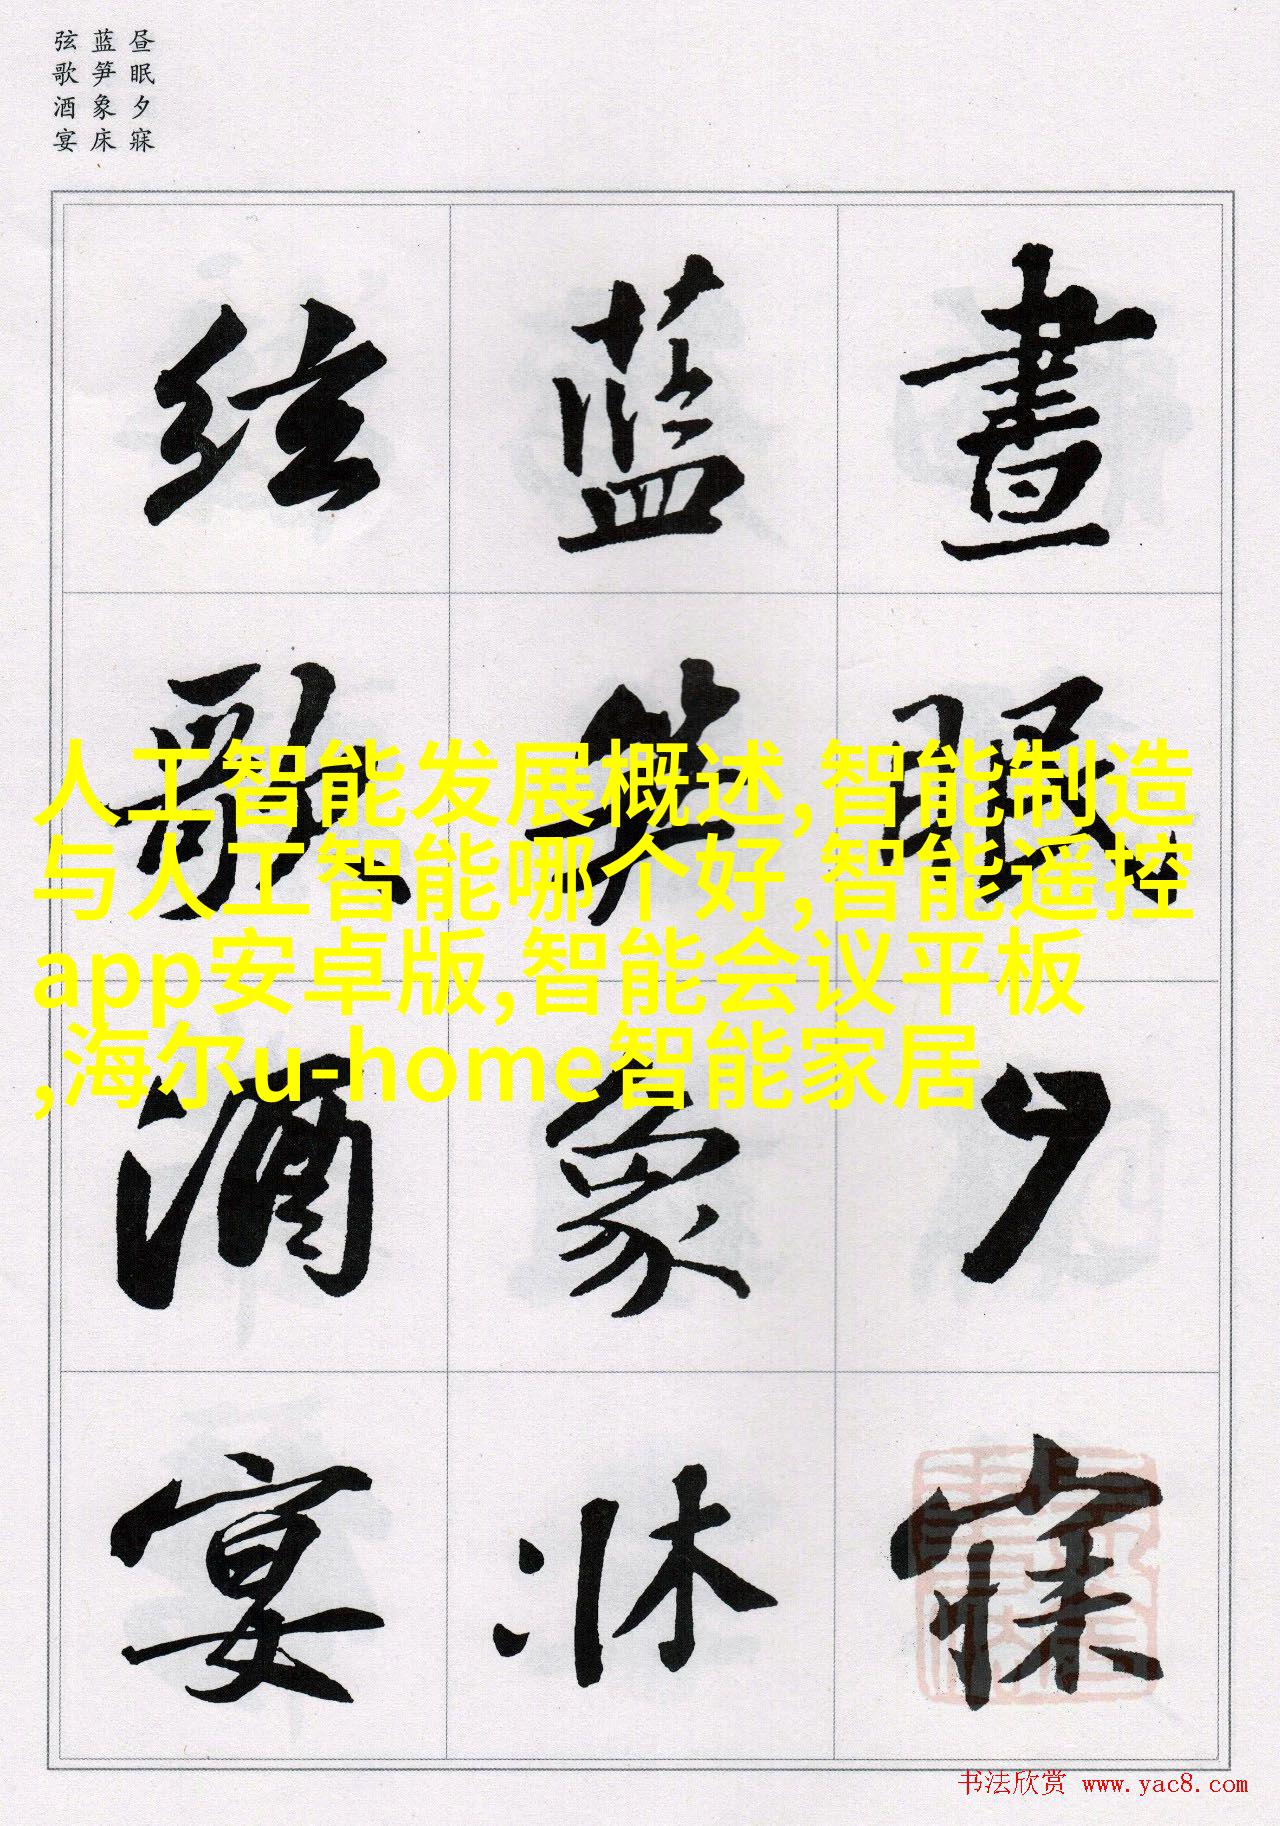 昼眠夕寐
蓝笋象床
弦歌酒宴
晝眠夕寐
藍笋象牀
絃歌酒宴
人工智能发展概述,智能制造
与人工智能哪个好,智能遥控
app安卓版,智能会议平板
,海尔u-home智能家居
书法欣赏 www.yac8.com